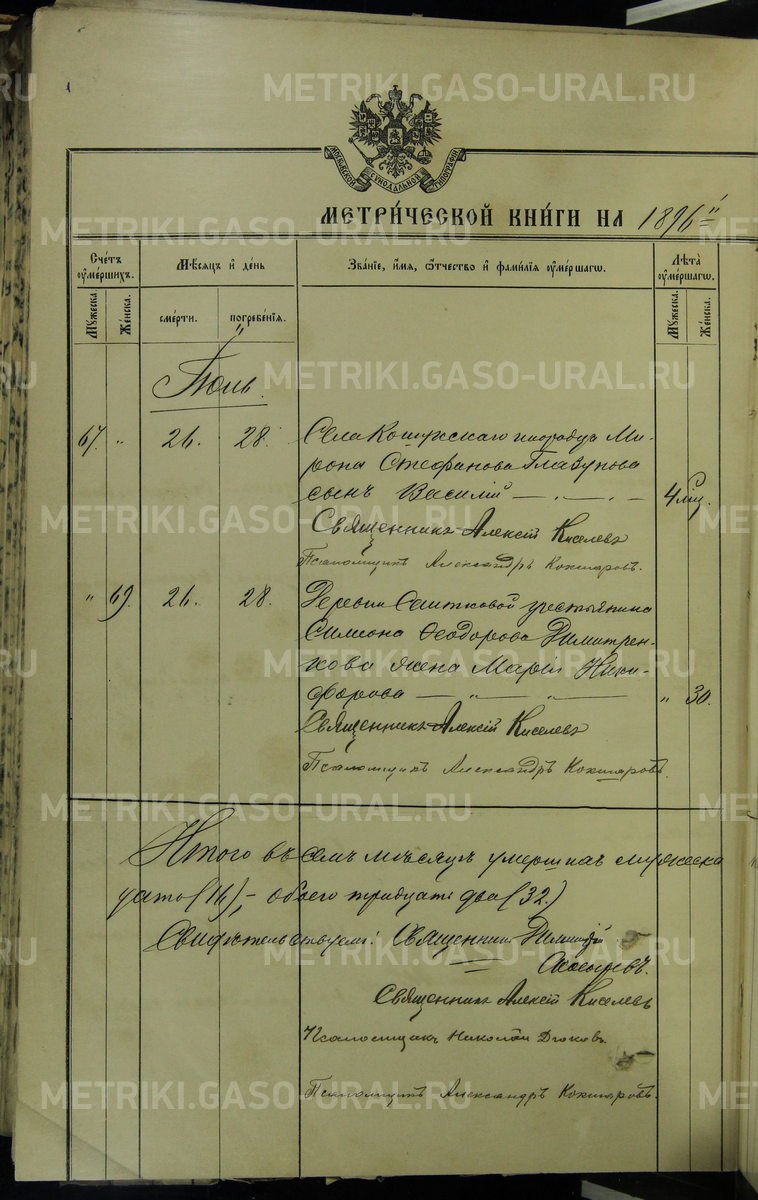 МОСКОВСКОЙ СѴНОДАЛЬНОЙ ТИПОГРАФІИ
МЕТРИ́ЧЕСКОЙ КНИ́ГИ НА 1896
Сче́тъ ᲂу҆ме́ршихъ.
Мꙋ́жеска.
Же́нска.
Мѣ́сяцъ и҆ де́нь
сме́рти.
погребе́нїя.
Зва́нїе, и҆́мя, ѻ҆́тчество и҆ фами́лїя ᲂу҆ме́ршагѡ.
Лѣ́та ᲂу҆ме́ршагѡ.
Мꙋ́жеска.
Же́нска.
Іюль.
67. " 26. 28. Села инородца Ми-
рона Стефанова Глазунова
сынъ Василій — 4 мѣс.
Священникъ Алексій Киселевъ
Псаломщикъ Александръ Кокшаровъ.
" 69. 26. 28. Деревни крестьянина
Симеона Ѳеодорова Димитрен-
кова жена Марія Ники-
форова — " — " — " 30.
Священникъ Алексій Киселевъ
Псаломщикъ Александръ Кокшаровъ.
Итого въ семъ мѣсяцѣ умершихъ мужеска
(16), - обоего тридцать два (32.)
Свидѣтельствуемъ: Священникъ Димитрій
Священникъ Алексій Киселевъ
Псаломщикъ Николай
Псаломщикъ Александръ Кокшаровъ.
METRIKI.GASO-URAL.RU